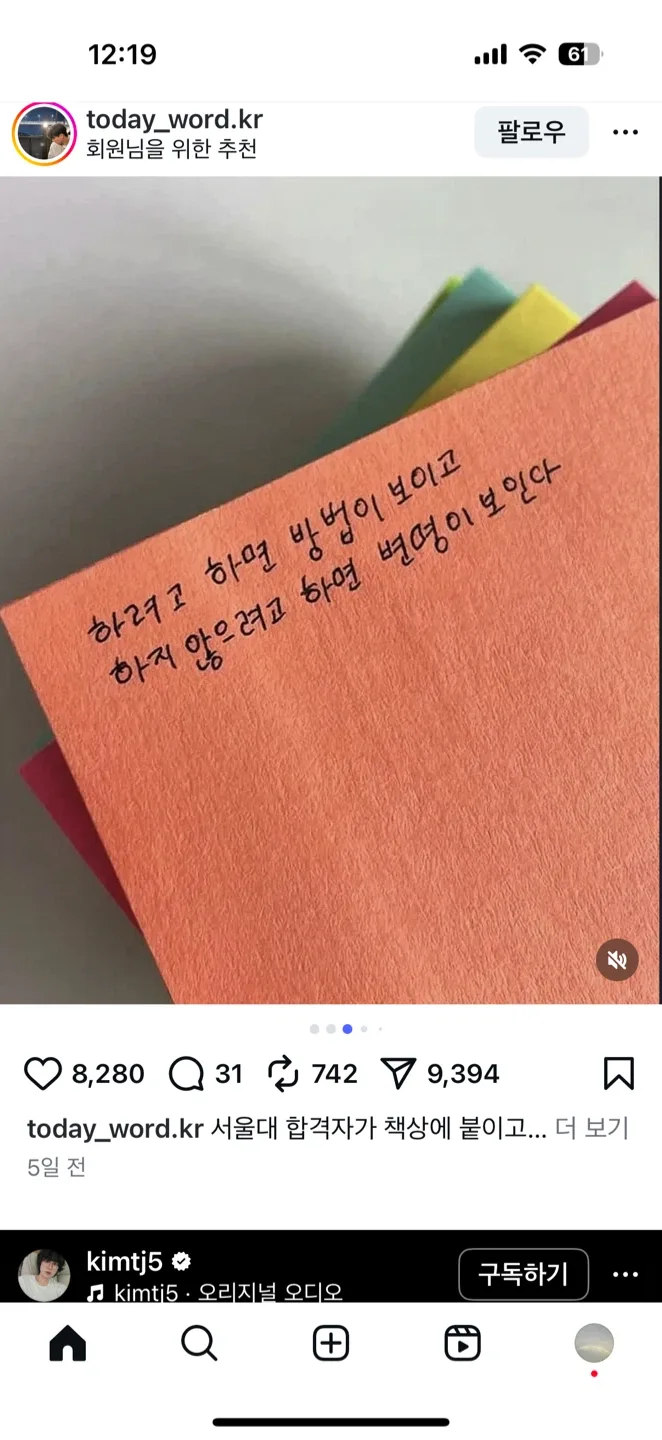 12:19
61
today_word.kr
회원님을 위한 추천
팔로우
하려고 하면 방법이 보이고
하지 않으려고 하면 변명이 보인다
8,280
31
742
9,394
today_word.kr 서울대 합격자가 책상에 붙이고... 더 보기
5일 전
kimtj5
kimtj5 · 오리지널 오디오
구독하기